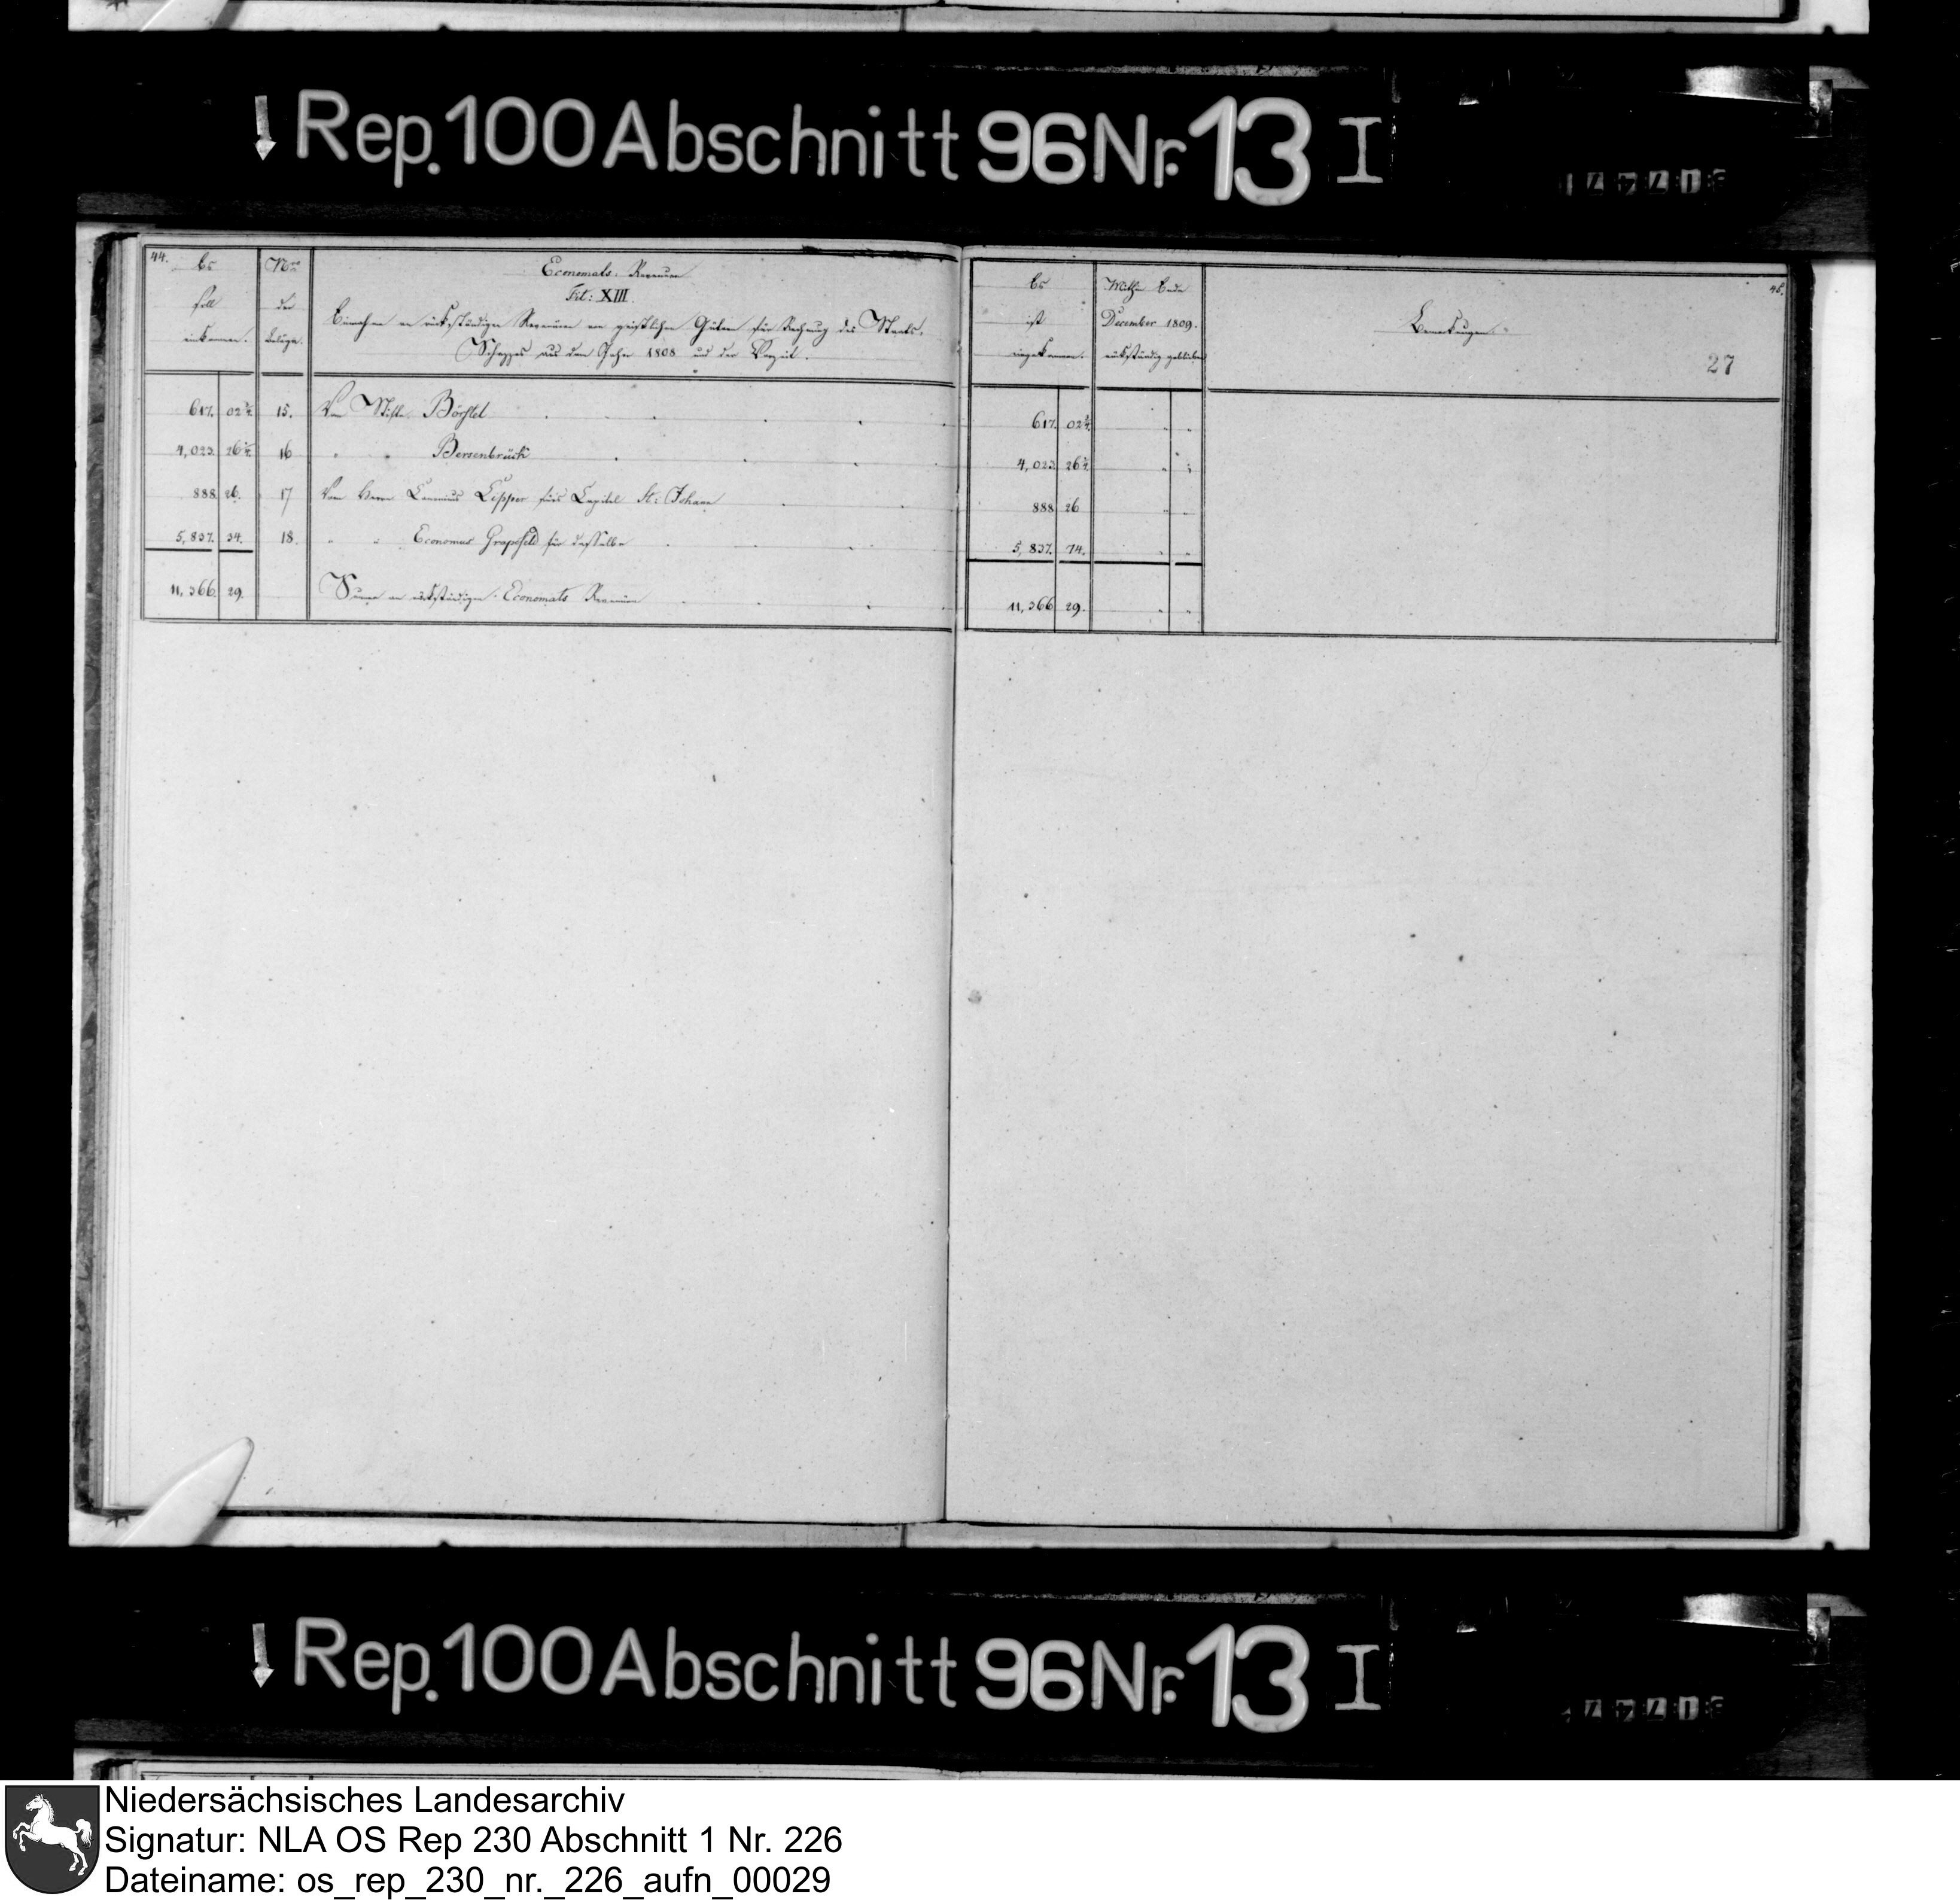 Rep. 100 Abschnitt 96 Nr. 13 I
44.
Es
soll
einkommen.
Nro
der
Beläge.
Economats-Revenüen
Tit: XIII.
Einnahme an rückständigen Revenüen von geistlichen Gütern für Rechnung des Staats-
Schatzes aus dem Jahre 1808 und der Vorzeit.
617. 02¾ 15. Vom Stifte Börstel
4,023. 26¼ 16 " " Bersenbrück
888 26. 17 Vom Herrn Lepper fürs Capitel St: Johann
5,837. 34. 18. " " Economus Graxfeld für dasselbe
11,366. 29. Summe an rückständigen Economats Revenüen
45.
Es
ist
eingekommen.
Mithin Ende
December 1809.
rückständig geblieben
Bemerkungen.
27
617. 02¾ " "
4,023. 26¼ " "
888 26 " "
5,837. 74. " "
11,366 29. " "
Rep. 100 Abschnitt 96 Nr. 13 I
Niedersächsisches Landesarchiv
Signatur: NLA OS Rep 230 Abschnitt 1 Nr. 226
Dateiname: os_rep_230_nr._226_aufn_00029